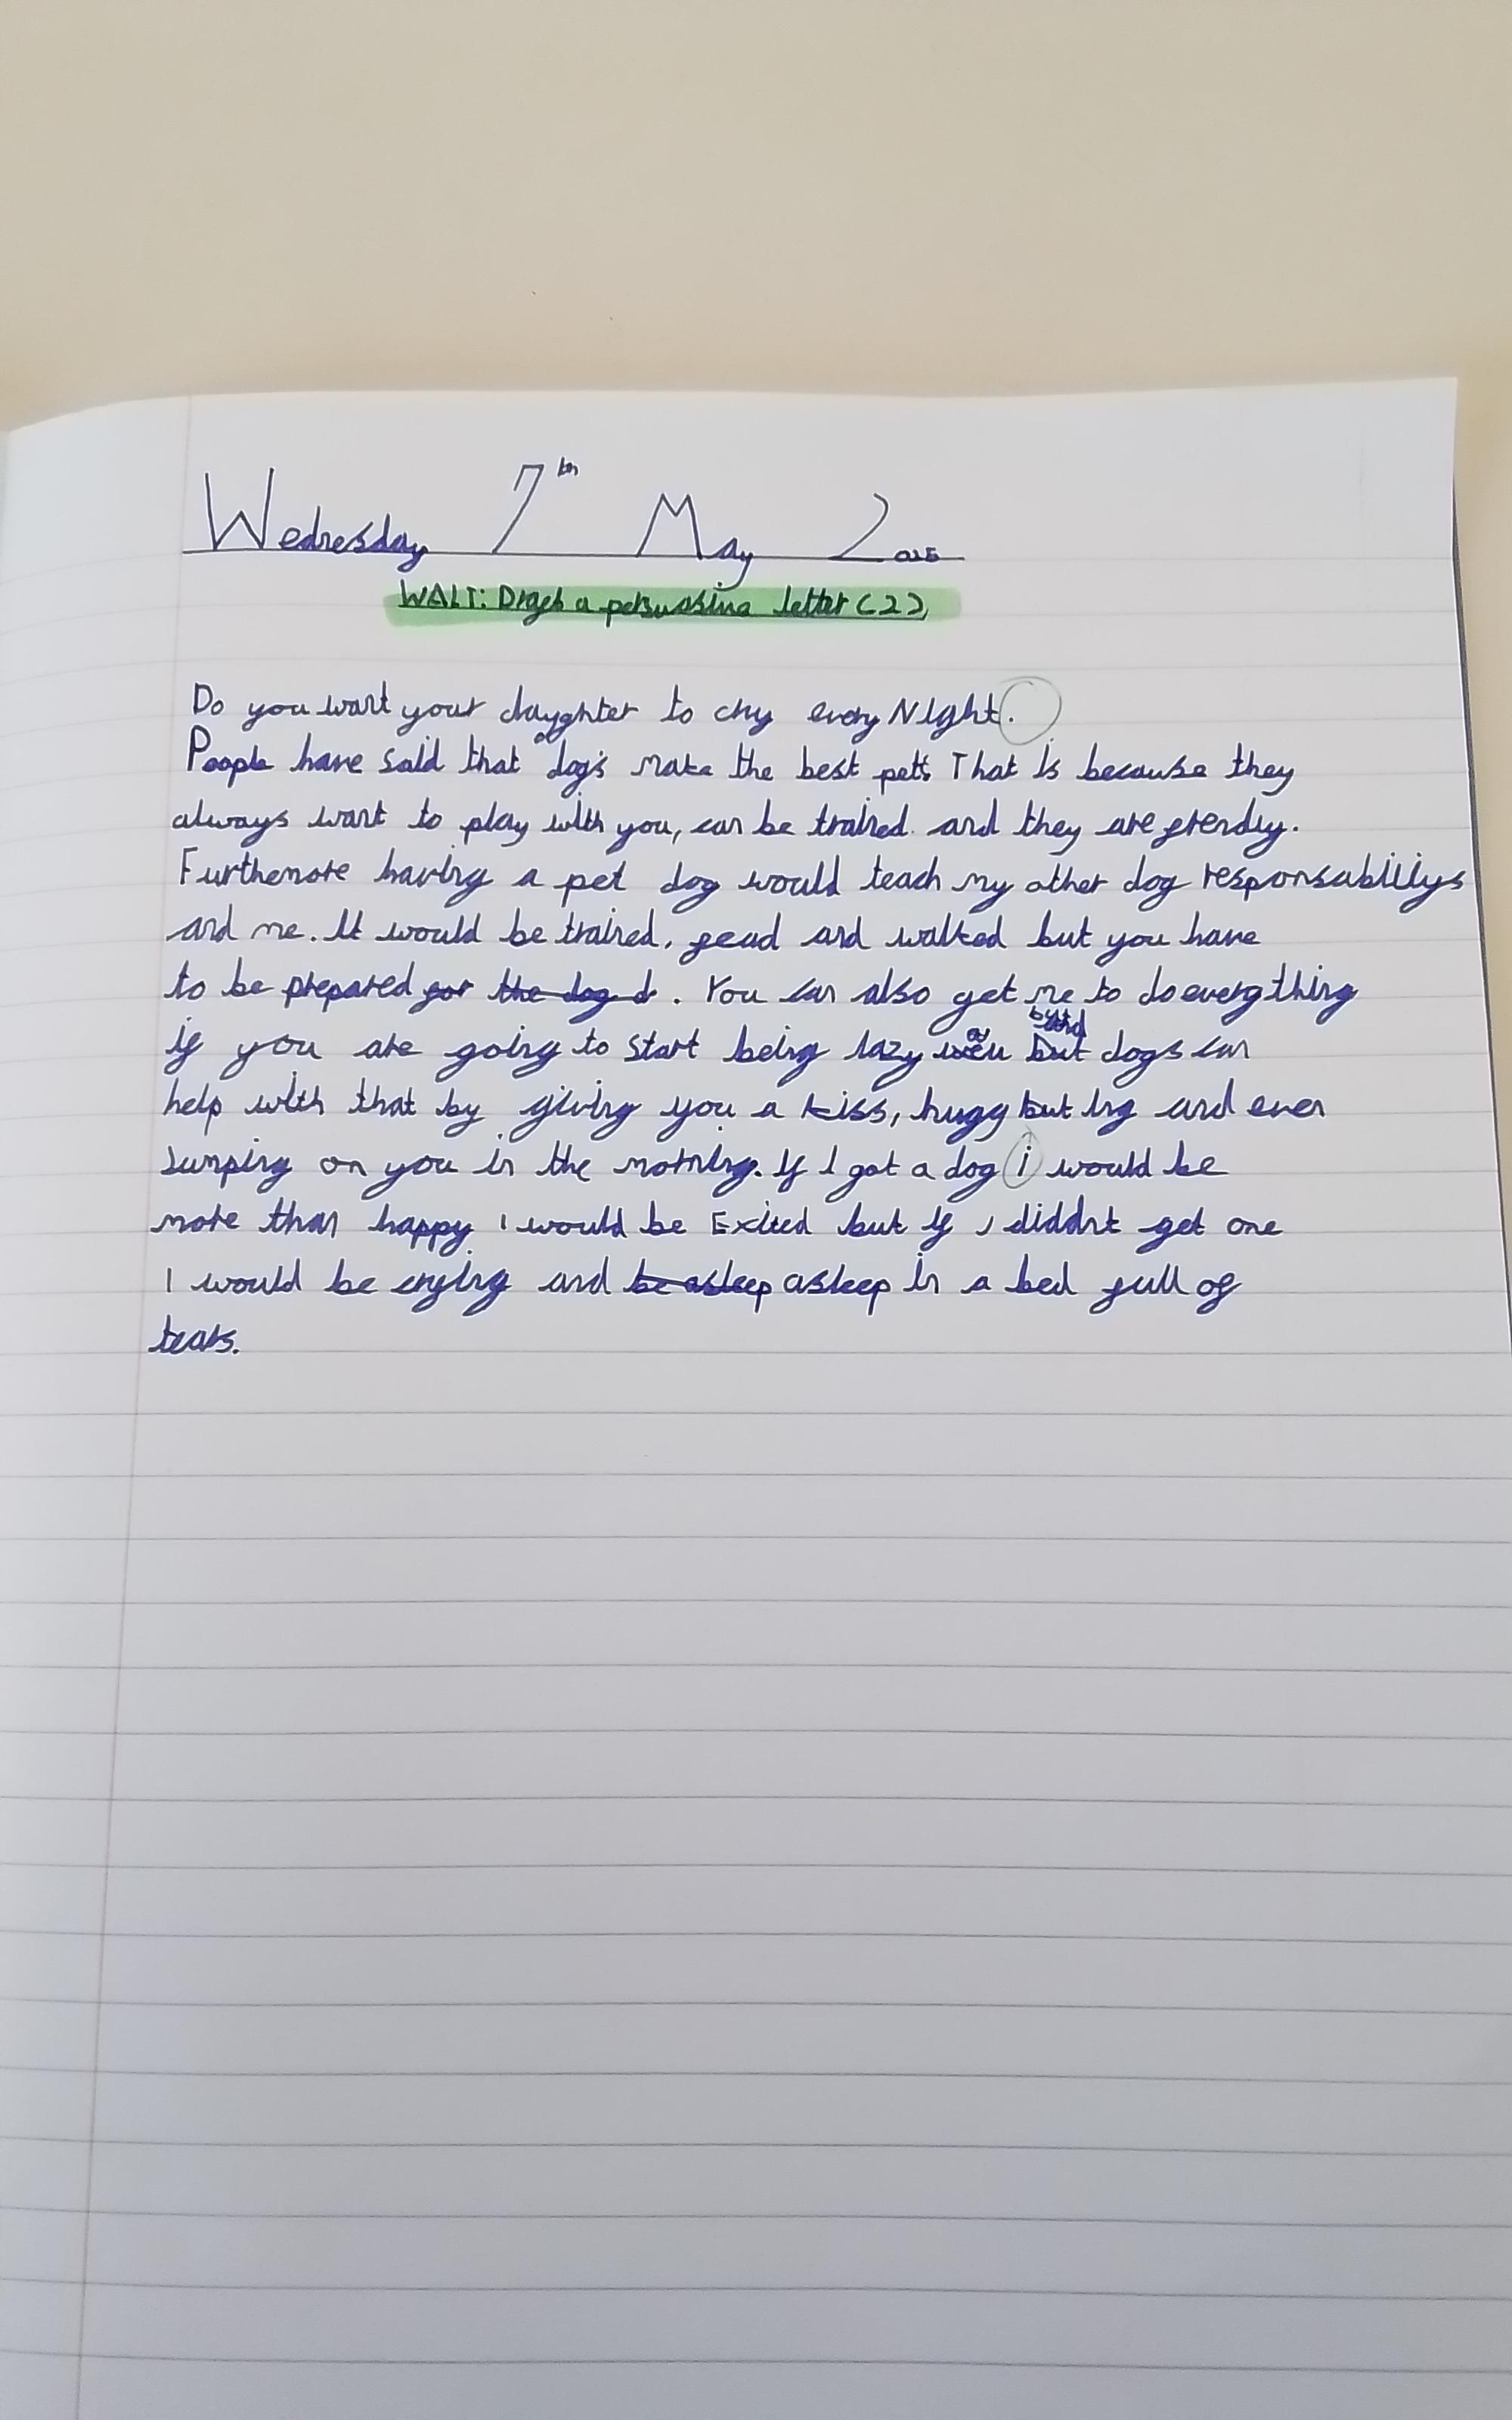 Wednesday 7th May 2025
WALT: Draft a persuasive letter (2)
Do you want your daughter to cry every Night.
People have said that dog's make the best pets. That is because they
always want to play with you, can be trained and they are frendly.
Furthemore having a pet dog would teach my other dog responsabilitys
and me. It would be trained, fead and walked but you have
to be prepared for the dog d. You can also get me to do everything
if you are going to start being lazy but dogs can
help with that by giving you a kiss, hugg but ing and even
Jumping on you in the morning. If I got a dog i would be
more than happy I would be Exited but if I diddnt get one
I would be crying and be asleep asleep in a bed full of
tears.